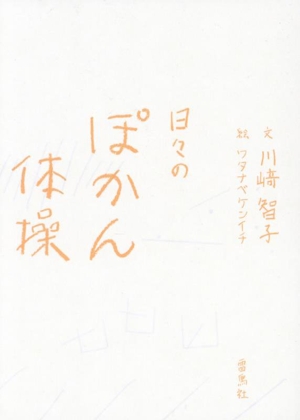 日々の
ぽかん
体操
文 川﨑智子
絵 ワタナベケンイチ
雷鳥社